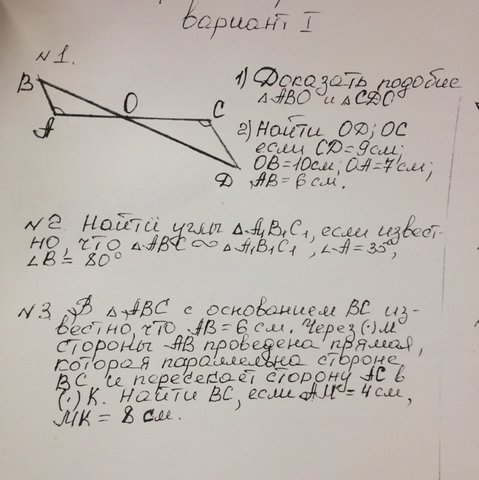 вариант I
N1.
B
O
C
A
D
1) Доказать подобие
△ABO и △CDO
2) Найти OD; OC
если CD=9см;
OB=10см; OA=7см;
AB=6см.
N2. Найти углы △A₁B₁C₁, если извест-
но, что △ABC∾△A₁B₁C₁, ∠A=35°,
∠B=80°
N3 В △ABC с основанием BC из-
вестно, что AB=6см. Через (·)M
стороны AB проведена прямая,
которая параллельна стороне
BC и пересекает сторону AC в
(·)K. Найти BC, если AM=4см,
MK=8см.